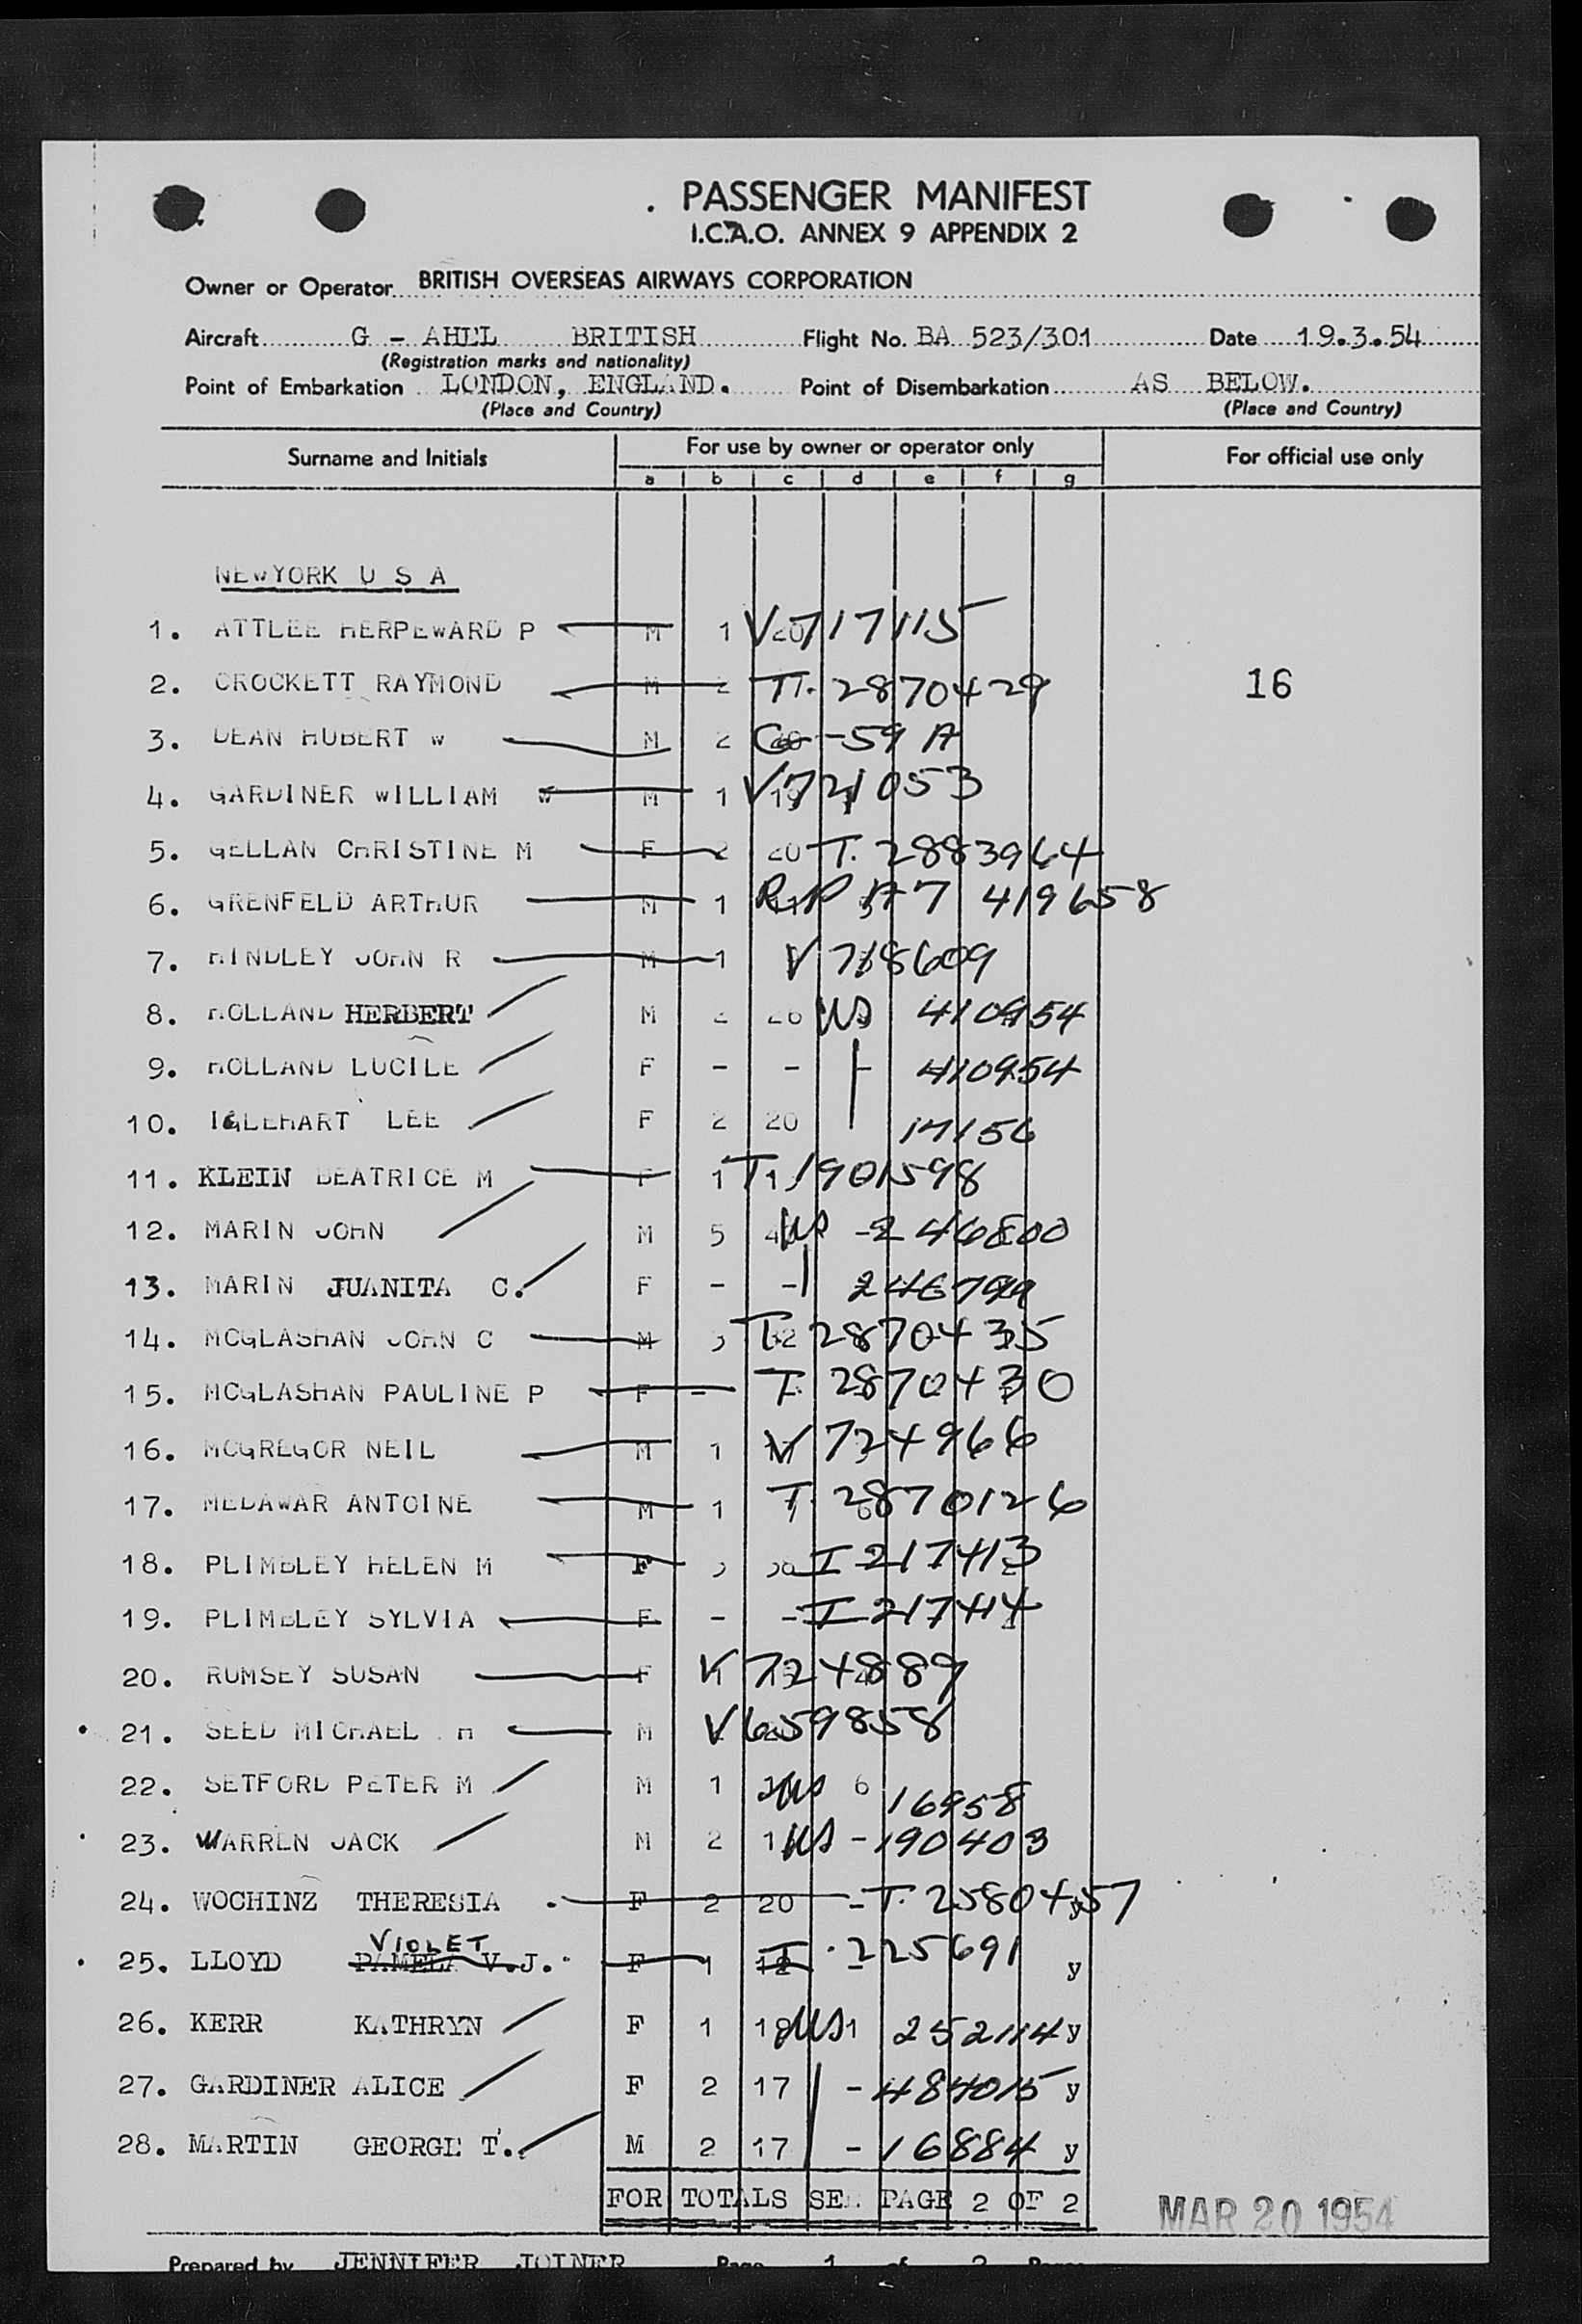 PASSENGER MANIFEST
I.C.A.O. ANNEX 9 APPENDIX 2
Owner or Operator BRITISH OVERSEAS AIRWAYS CORPORATION
Aircraft G - AHEL BRITISH Flight No. BA 523/301 Date 19.3.54
(Registration marks and nationality)
Point of Embarkation LONDON, ENGLAND. Point of Disembarkation AS BELOW.
(Place and Country) (Place and Country)
Surname and Initials For use by owner or operator only For official use only
a b c d e f g
NEWYORK U S A
1. ATTLEE HERPEWARD P M 1 20 V717115
2. CROCKETT RAYMOND M 2 TT. 2870429 16
3. DEAN HUBERT W M 2 -59 A
4. GARDINER WILLIAM W M 1 19 V721053
5. GELLAN CHRISTINE M F 2 20 T. 2883964
6. GRENFELD ARTHUR M 1 419658
7. HINDLEY JOHN R M 1 V 718609
8. HOLLAND HERBERT M 2 26 US 410954
9. HOLLAND LUCILE F - - - 410954
10. IGLEHART LEE F 2 20 17156
11. KLEIN BEATRICE M F 1 T 1901598
12. MARIN JOHN M 5 US - 246800
13. MARIN JUANITA C. F - - 246799
14. MCGLASHAN JOHN C M T. 2870435
15. MCGLASHAN PAULINE P F - T. 2870430
16. MCGREGOR NEIL M 1 V 724966
17. MEDAWAR ANTOINE M 1 T. 2870126
18. PLIMBLEY HELEN M F I 217413
19. PLIMBLEY SYLVIA F - - I 217414
20. RUMSEY SUSAN F V 724889
21. SEED MICHAEL H M V659858
22. SETFORD PETER M M 1 US 6 16958
23. WARREN JACK M 2 US - 190403
24. WOCHINZ THERESIA F 2 20 - T. 2580457
VIOLET
25. LLOYD PAMELA V.J. F 1 I - 225691 y
26. KERR KATHRYN F 1 US 1 252114 y
27. GARDINER ALICE F 2 17 - 484015 y
28. MARTIN GEORGE T. M 2 17 - 16884 y
FOR TOTALS SEE PAGE 2 OF 2
MAR 20 1954
Prepared by JENNIFER JOINER Page 1 of 2 Pages